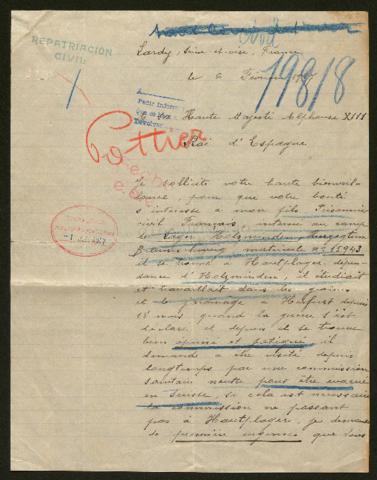 REPATRIACIÓN
CIVIL
Civil
Lardy, Seine et Oise, France
le 6 Février 1917
19818
Pedir inform
Haute Majesté Alphonse XIII
Roi d'Espagne
Pottier
Je sollicite votre haute bienveil-
lance, pour que votre bonté
s'intéresse à mon fils Prisonnier
civil Français, interné au camp
de Lager Holzminden,
matricule n° 15943
il se trouve à Hautplager, dépen-
dance d'Holzminden, il étudiait
et travaillait dans les grains
et le à Herfurt depuis
18 mois quand la guerre s'est
déclaré, et depuis il se trouve
bien épuisé et fatigué, il
demande a être visité depuis
longtemps par une commission
sanitaire neutre pour être evacué
en Suisse, si cela est nécessaire
la commission ne passant
pas à Hautplager, je demande
de première urgence que vous